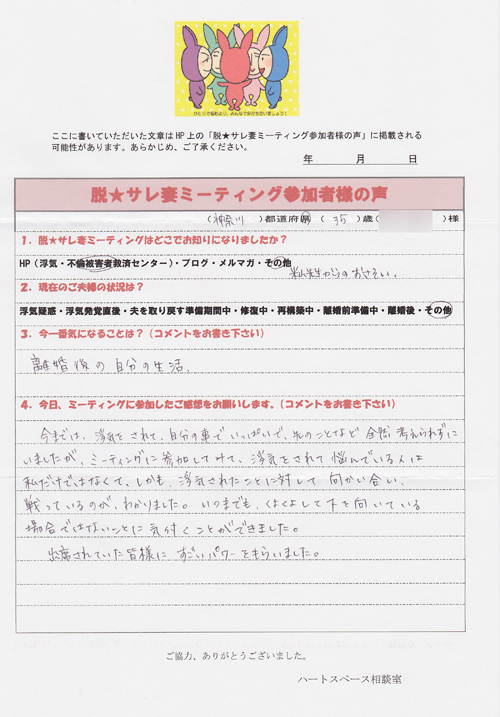 ひとりで悩むより、みんなでお力を合いましょう!
ここに書いていただいた文章は HP 上の「脱★サレ妻ミーティング参加者様の声」に掲載される
可能性があります。あらかじめ、ご了承ください。
年 月 日
脱★サレ妻ミーティング参加者様の声
(神奈川)都道府県 (35)歳( )様
1.脱★サレ妻ミーティングはどこでお知りになりましたか?
HP(浮気・不倫被害者救済センター)・ブログ・メルマガ・その他
私先生からのおさそい。
2.現在のご夫婦の状況は?
浮気疑惑・浮気発覚直後・夫を取り戻す準備期間中・修復中・再構築中・離婚前準備中・離婚後・その他
3.今一番気になることは?(コメントをお書き下さい)
離婚後の自分の生活。
4.今日、ミーティングに参加したご感想をお願いします。(コメントをお書き下さい)
今までは、浮気をされて、自分の事でいっぱいで、先のことなど全然考えられずに
いましたが、ミーティングに参加してみて、浮気をされて悩んでいる人は
私だけではなくて、しかも、浮気されたことに対して向かい合い、
戦っているのが、わかりました。いつまでも、くよくよして下を向いている
場合ではないことに気付くことができました。
出席されていた皆様にすごいパワーをもらいました。
ご協力、ありがとうございました。
ハートスペース相談室